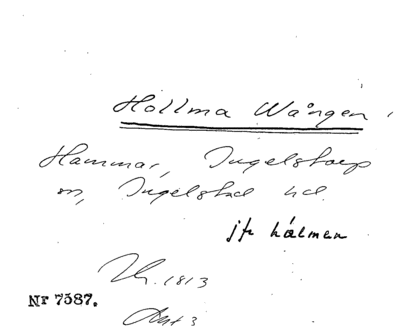 Hollma Wången
Hammar, Ingelstorp
sn, Ingelstad hd.
jfr hålmen
1813
Nr 7587.
Akt 3